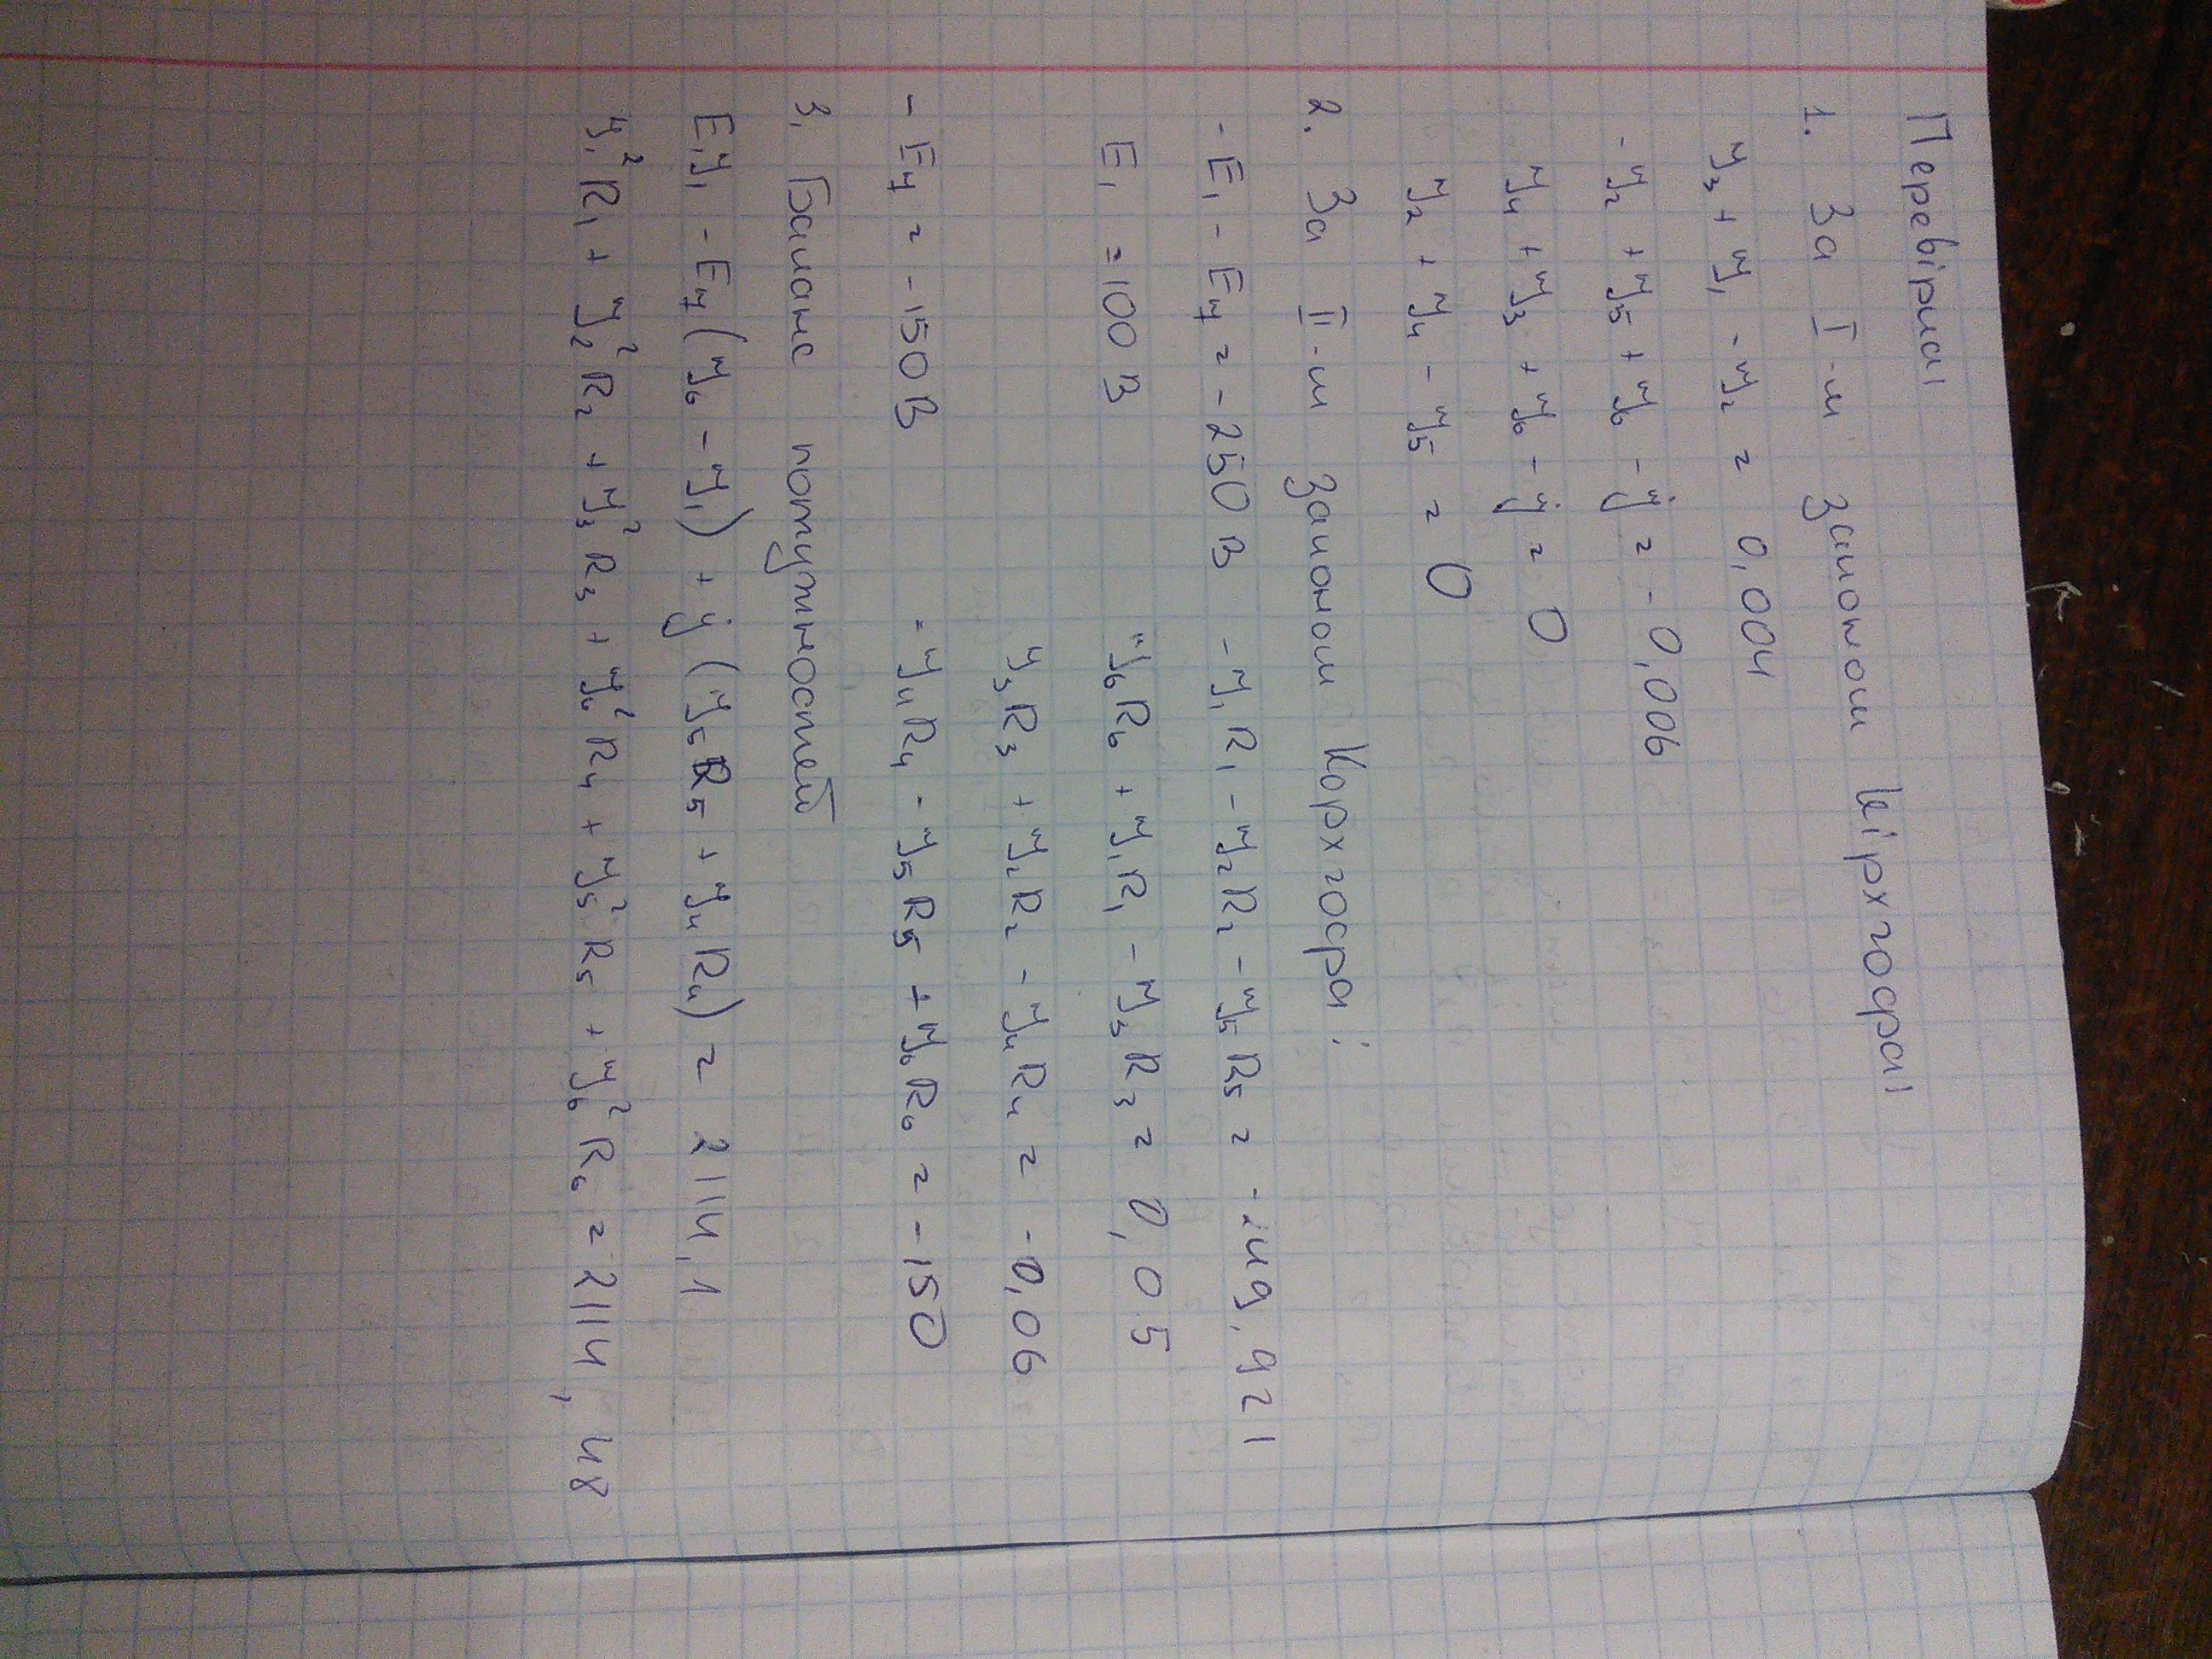 Перевірка
1. За І-м законом Кірхгофа
I₃ + I₁ - I₂ = 0,004
- I₂ + I₅ + I₆ - j = - 0,006
I₄ + I₃ + I₆ - j = 0
I₂ + I₄ - I₅ = 0
2. За ІІ-м законом Кірхгофа:
- E₁ - E₇ = - 250 В - I₁R₁ - I₂R₂ - I₅R₅ = - 49,921
E₁ = 100 В I₆R₆ + I₁R₁ - I₃R₃ = 0,05
I₃R₃ + I₂R₂ - I₄R₄ = - 0,06
- E₇ = - 150 В - I₄R₄ - I₅R₅ + I₆R₆ = - 150
3. Баланс потужностей
E₁I₁ - E₇(I₆ - I₁) + j(I₅R₅ + I₄R₄) = 2114,1
I₁²R₁ + I₂²R₂ + I₃²R₃ + I₄²R₄ + I₅²R₅ + I₆²R₆ = 2114,48